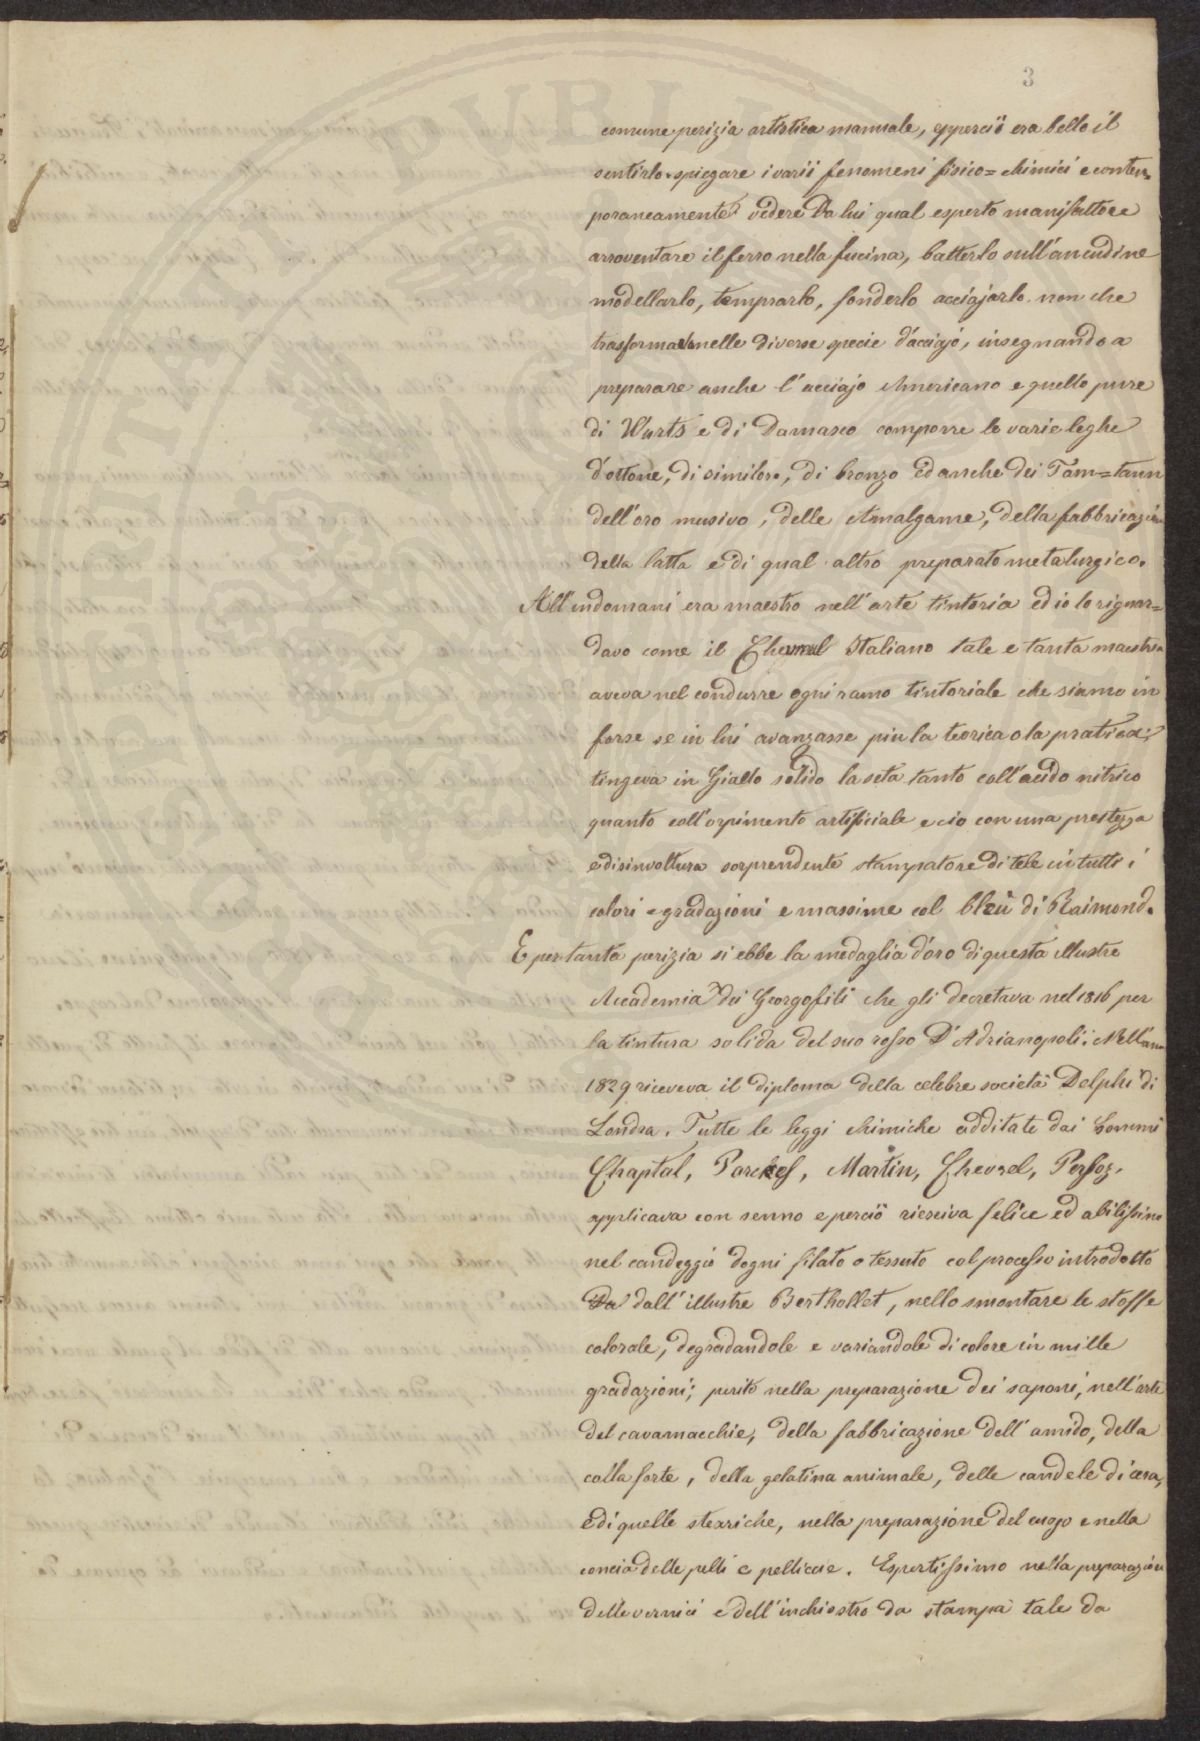 3
comune perizia artistica manuale, epperciò era bello il
sentirlo spiegare i varii fenomeni fisico=chimici e contem
poraneamente vedere Da lui qual esperto manifattore
arroventare il ferro nella fucina, batterlo sull'ancudine
modellarlo, temprarlo, fonderlo acciajarlo non che
trasformarlo nelle diverse specie d'acciajo, insegnando a
preparare anche l'acciajo Americano e quello pure
di Wurts e di Damasco comporre le varie leghe
d'ottone, di similoro, di bronzo ed anche dei Tam=tamn
dell'oro musivo, delle Amalgame, della fabbricazion
della latta e di qual altro preparato metalurgico.
All'indomani era maestro nell'arte tintoria ed io lo riguar=
davo come il Chevreul Italiano tale e tanta maestria
aveva nel condurre ogni ramo tintoriale che siamo in
forse se in lui avanzasse piu la teorica o la pratica;
tingeva in Giallo solido la seta tanto coll'acido nitrico
quanto coll'orpimento artificiale e cio con una prestezza
e disinvoltura sorprendente stampatore di tele in tutti i
colori e gradazioni e massime col bleù di Raimond.
E per tanta perizia si ebbe la medaglia d'oro di questa illustre
Accademia dei Georgofili che gli decretava nel 1816 per
la tintura solida del suo rosso D'Adrianopoli. Nell'an
1829 riceveva il diploma della celebre società Delphi di
Londra. Tutte le leggi chimiche additate dai Sommi
Chaptal, Parckes, Martin, Chevrel, Persoz,
applicava con senno e perciò riesciva felice ed abilissimo
nel candeggio dogni filato o tessuto col processo introdotto
Da dall'illustre Berthollet, nello smontare le stoffe
colorale, degradandole e variandole di colore in mille
gradazioni; perito nella preparazione dei saponi, nell'arte
del cavamacchie, della fabbricazione dell'amido, della
colla forte, della gelatina animale, delle candele di cera,
e di quelle steariche, nella preparazione del cuojo e nella
concia delle pelli e pelliccie. Espertissimo nella preparazion
delle vernici e dell'inchiostro da stampa tale da